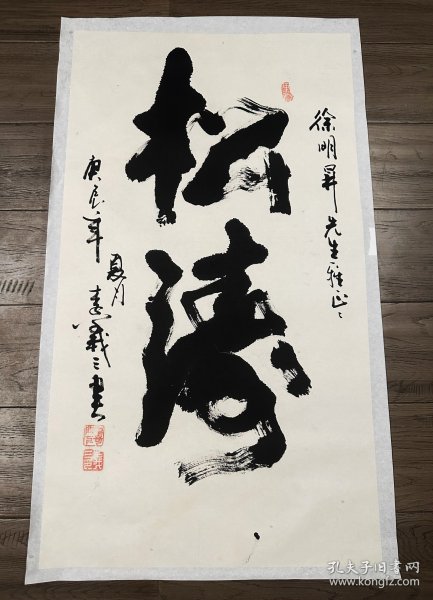 徐明昇先生雅正
松涛
庚辰年夏月
书
孔夫子旧书网
www.kongfz.com